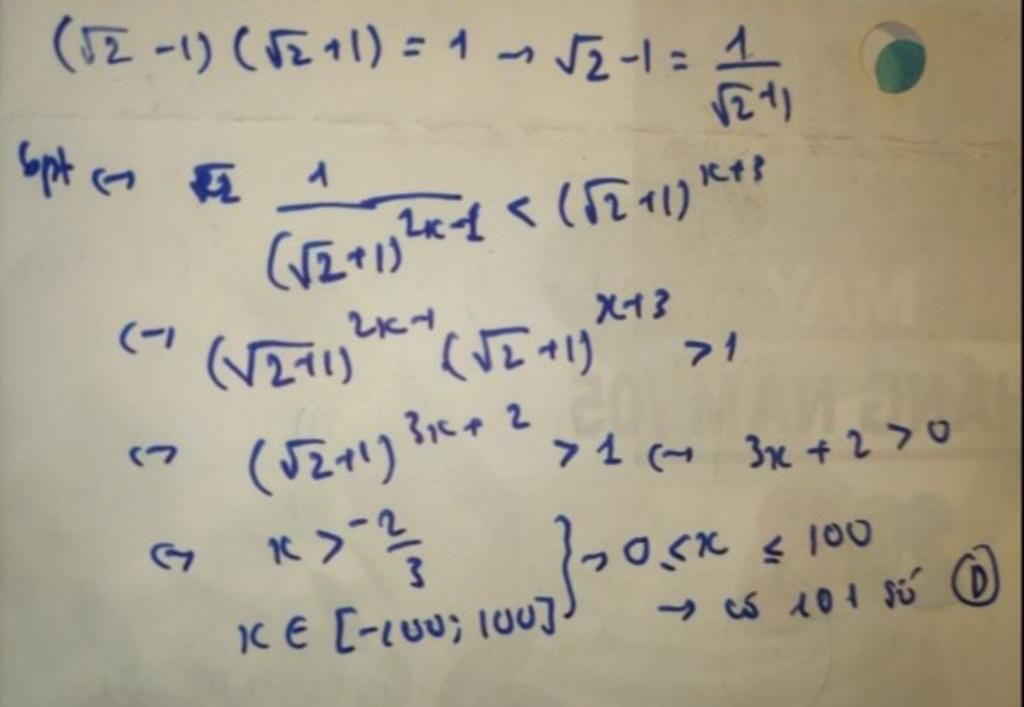 (√2 -1) (√2 +1) = 1 → √2 -1 = 1/(√2+1)
bpt ↔ 1/(√2+1)^(2x-1) < (√2+1)^(x+3)
↔ (√2+1)^(2x-1) (√2+1)^(x+3) > 1
↔ (√2+1)^(3x+2) > 1 ↔ 3x + 2 > 0
↔ x > -2/3 } → 0 ≤ x ≤ 100
x ∈ [-100; 100] → có 101 số Ⓓ